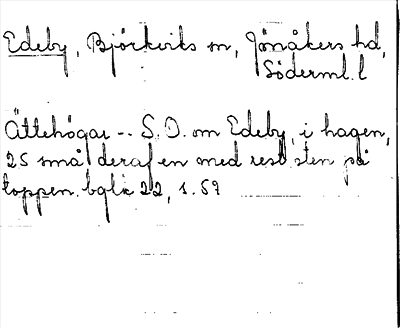 Edeby, Björkviks sn, Jönåkers hd,
Söderml. l
Ättehögar -- S.O. om Edeby, i hagen,
25 små deraf en med rest sten på
toppen. bgl. 22, s. 59